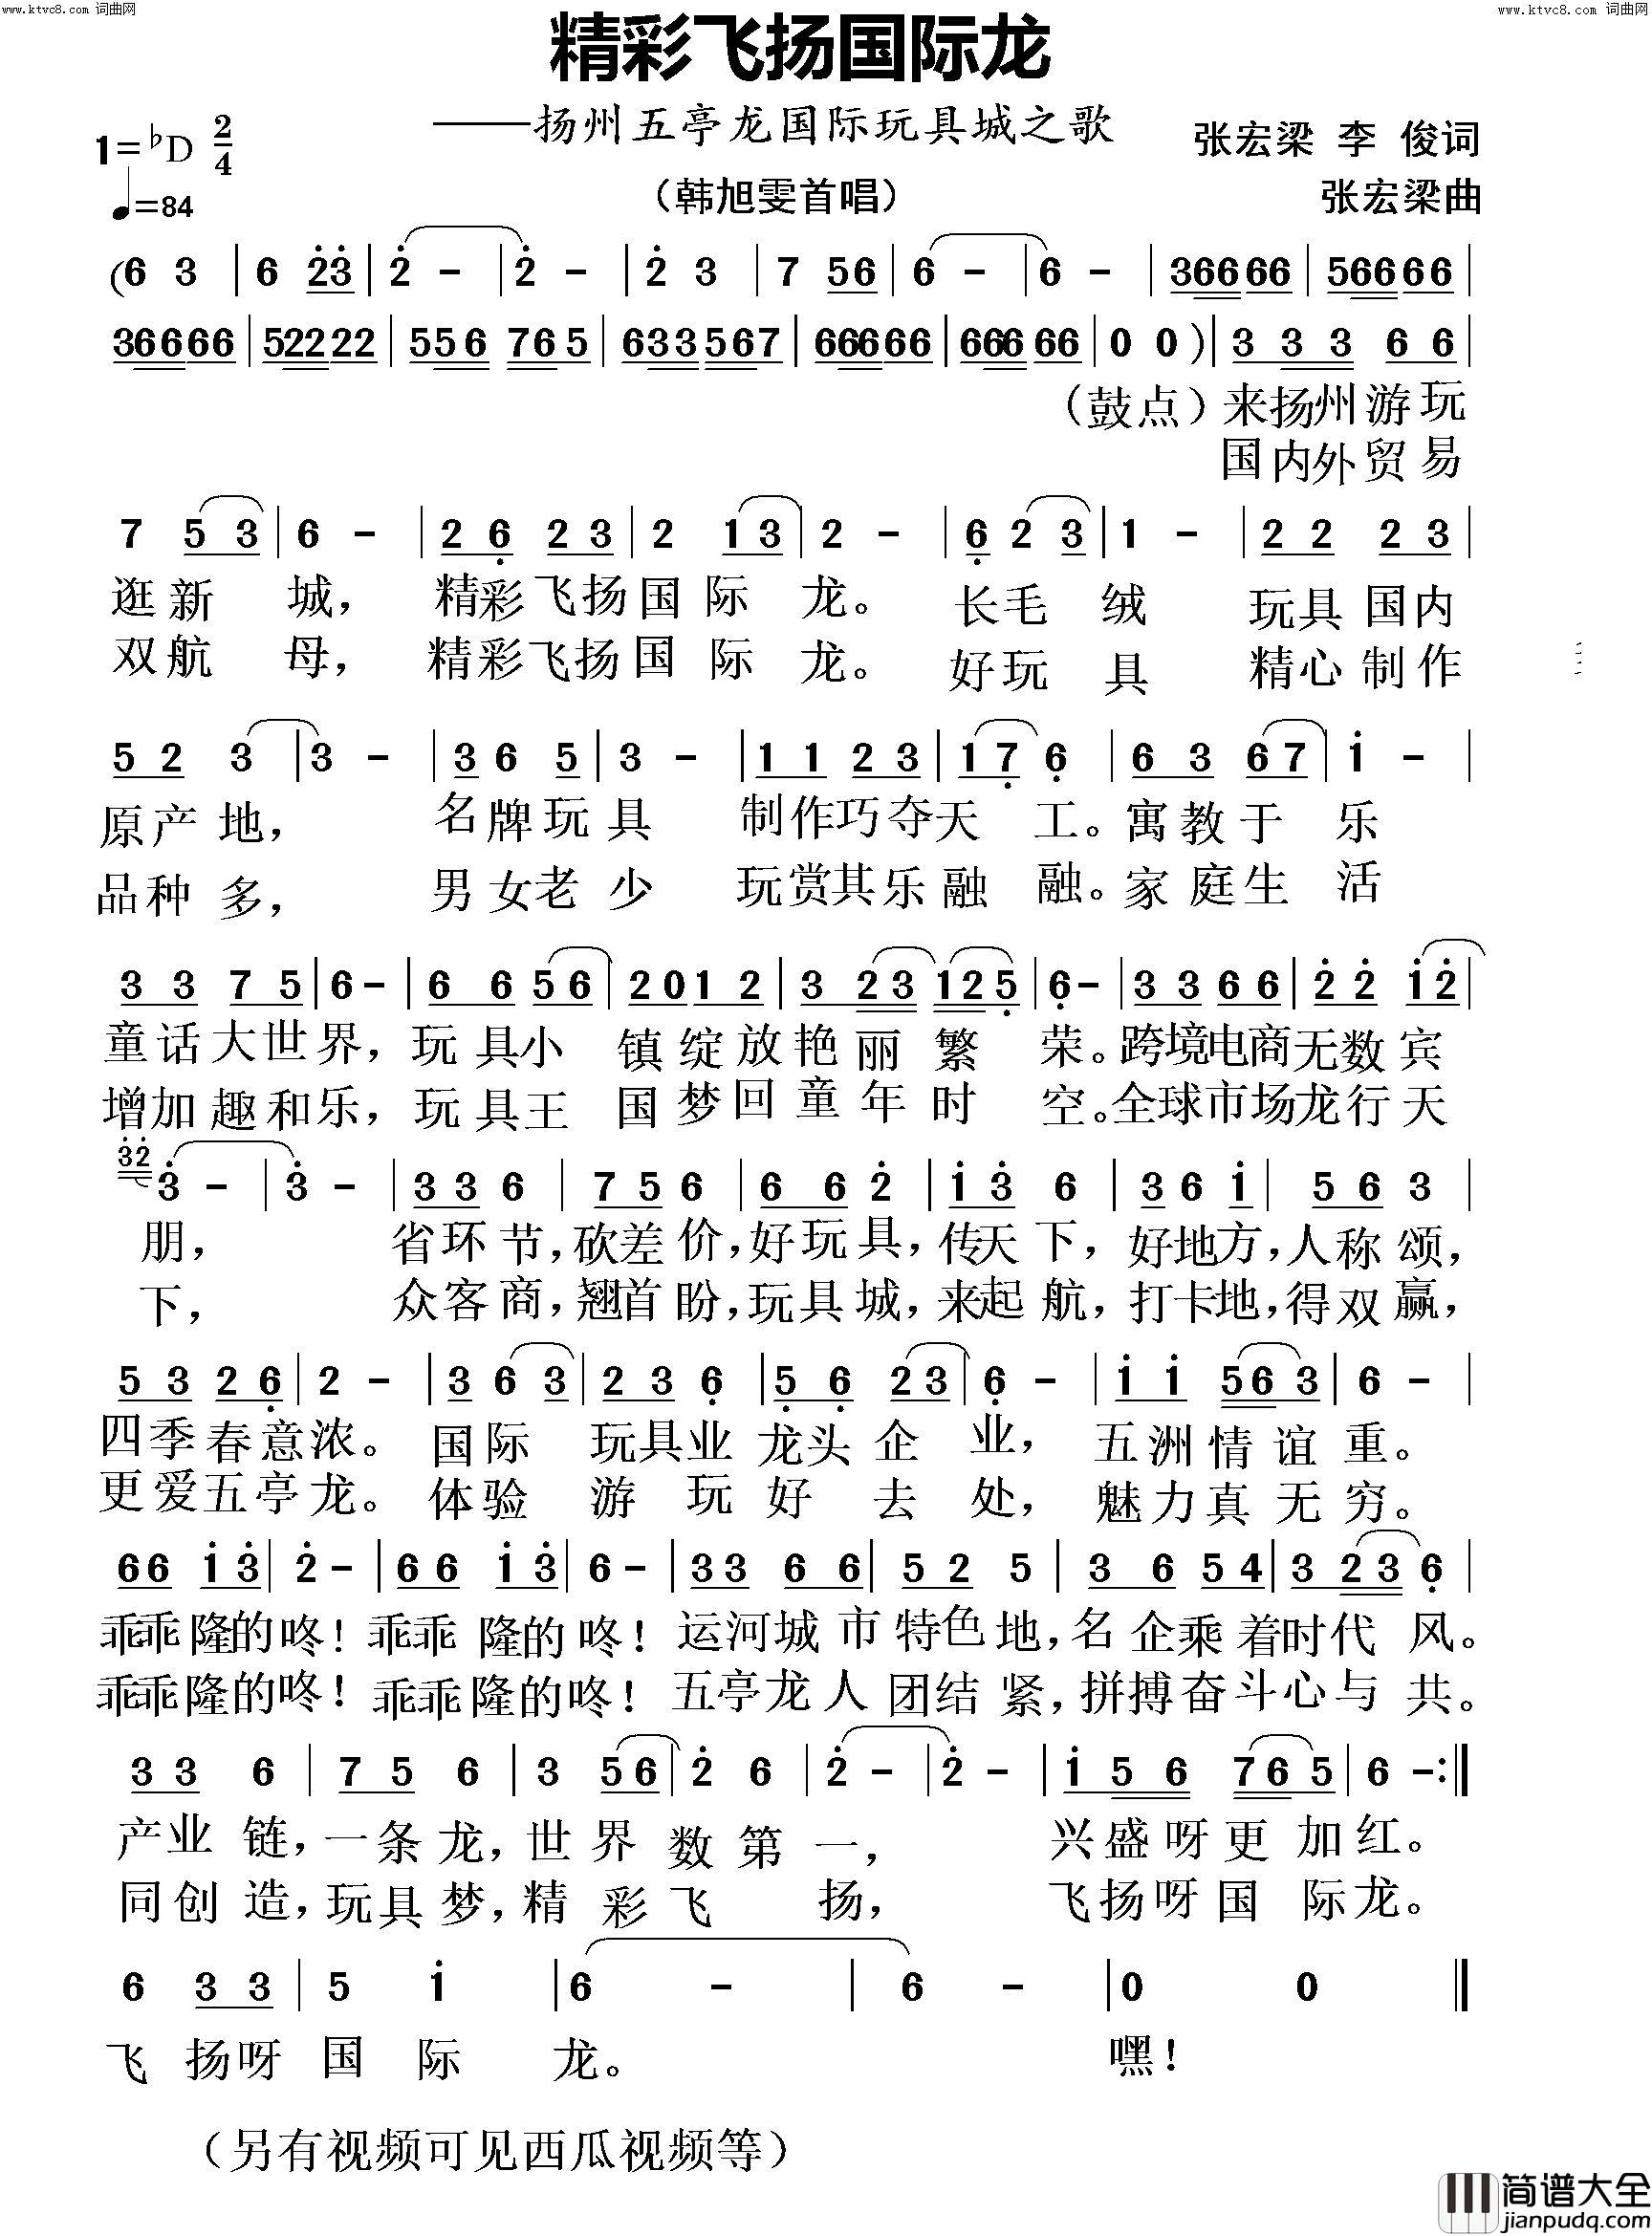 www.ktvc8.com 词曲网
www.ktvc8.com 词曲网
精彩飞扬国际龙
——扬州五亭龙国际玩具城之歌
1=♭D 2/4
张宏梁 李 俊词
♩=84
（韩旭雯首唱）
张宏梁曲
(6 3 | 6 2̇3̇ | 2̇ - | 2̇ - | 2̇ 3 | 7 56 | 6 - | 6 - | 36666 | 56666 |
36666 | 52222 | 556 765 | 633567 | 666666 | 666666 | 0 0 ) | 3 3 3 6 6 |
（鼓点）来扬州游玩
国内外贸易
7 5 3 | 6 - | 2 6̣ 2 3 | 2 1 3 | 2 - | 6̣ 2 3 | 1 - | 2 2 2 3 |
逛新城，精彩飞扬国际龙。长毛绒玩具国内
双航母，精彩飞扬国际龙。好玩具精心制作
5 2 3 | 3 - | 3 6 5 | 3 - | 1 1 2 3 | 1 7̣ 6̣ | 6 3 6 7 | 1̇ - |
原产地，名牌玩具制作巧夺天工。寓教于乐
品种多，男女老少玩赏其乐融融。家庭生活
3 3 7 5 | 6 - | 6 6 5 6 | 2 0 1 2 | 3 2 3 | 1 2 5̣ | 6̣ - | 3 3 6 6 | 2̇ 2̇ 1̇ 2̇ |
童话大世界，玩具小镇绽放艳丽繁荣。跨境电商无数宾
增加趣和乐，玩具王国梦回童年时空。全球市场龙行天
3̇2̇ 3̇ - | 3̇ - | 3 3 6 | 7 5 6 | 6 6 2̇ | 1̇ 3̇ 6 | 3 6 1̇ | 5 6 3 |
朋，省环节，砍差价，好玩具，传天下，好地方，人称颂，
下，众客商，翘首盼，玩具城，来起航，打卡地，得双赢，
5 3 2 6̣ | 2 - | 3 6 3 | 2 3 6̣ | 5̣ 6̣ 2 3 | 6̣ - | 1̇ 1̇ 5 6 3 | 6 - |
四季春意浓。国际玩具业龙头企业，五洲情谊重。
更爱五亭龙。体验游玩好去处，魅力真无穷。
6 6 1̇ 3̇ | 2̇ - | 6 6 1̇ 3̇ | 6 - | 3 3 6 6 | 5 2 5 | 3 6 5 4 | 3 2 3 6̣ |
乖乖隆的咚！乖乖隆的咚！运河城市特色地，名企乘着时代风。
乖乖隆的咚！乖乖隆的咚！五亭龙人团结紧，拼搏奋斗心与共。
3 3 6 | 7 5 6 | 3 5 6 | 2̇ 6 | 2̇ - | 2̇ - | 1̇ 5 6 7 6 5 | 6 - :‖
产业链，一条龙，世界数第一，兴盛呀更加红。
同创造，玩具梦，精彩飞扬，飞扬呀国际龙。
6 3 3 | 5 1̇ | 6 - | 6 - | 0 0 ‖
飞扬呀国际龙。嘿！
（另有视频可见西瓜视频等）
简谱大全
jianpudq.com